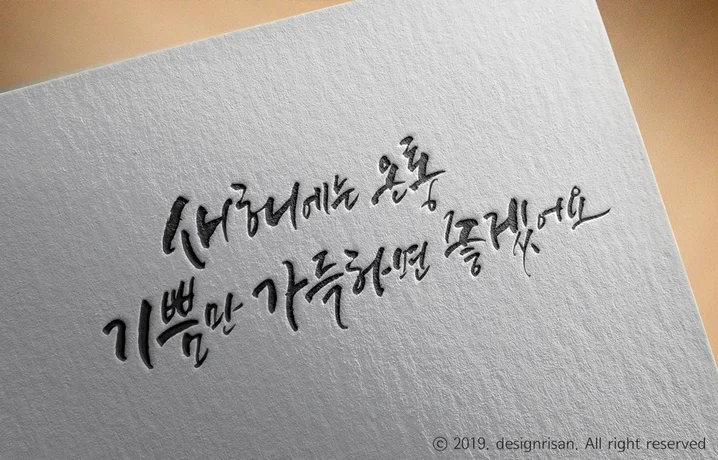 새해에는 온통
기쁨만 가득하면 좋겠어요
ⓒ 2019. designrisan. All right reserved